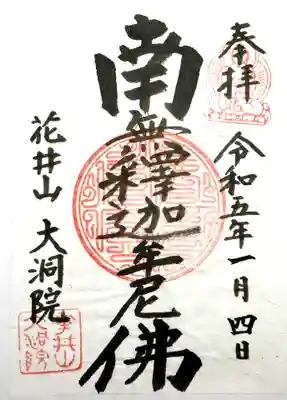 奉拝
令和五年一月四日
南無釋迦牟尼佛
花井山 大洞院